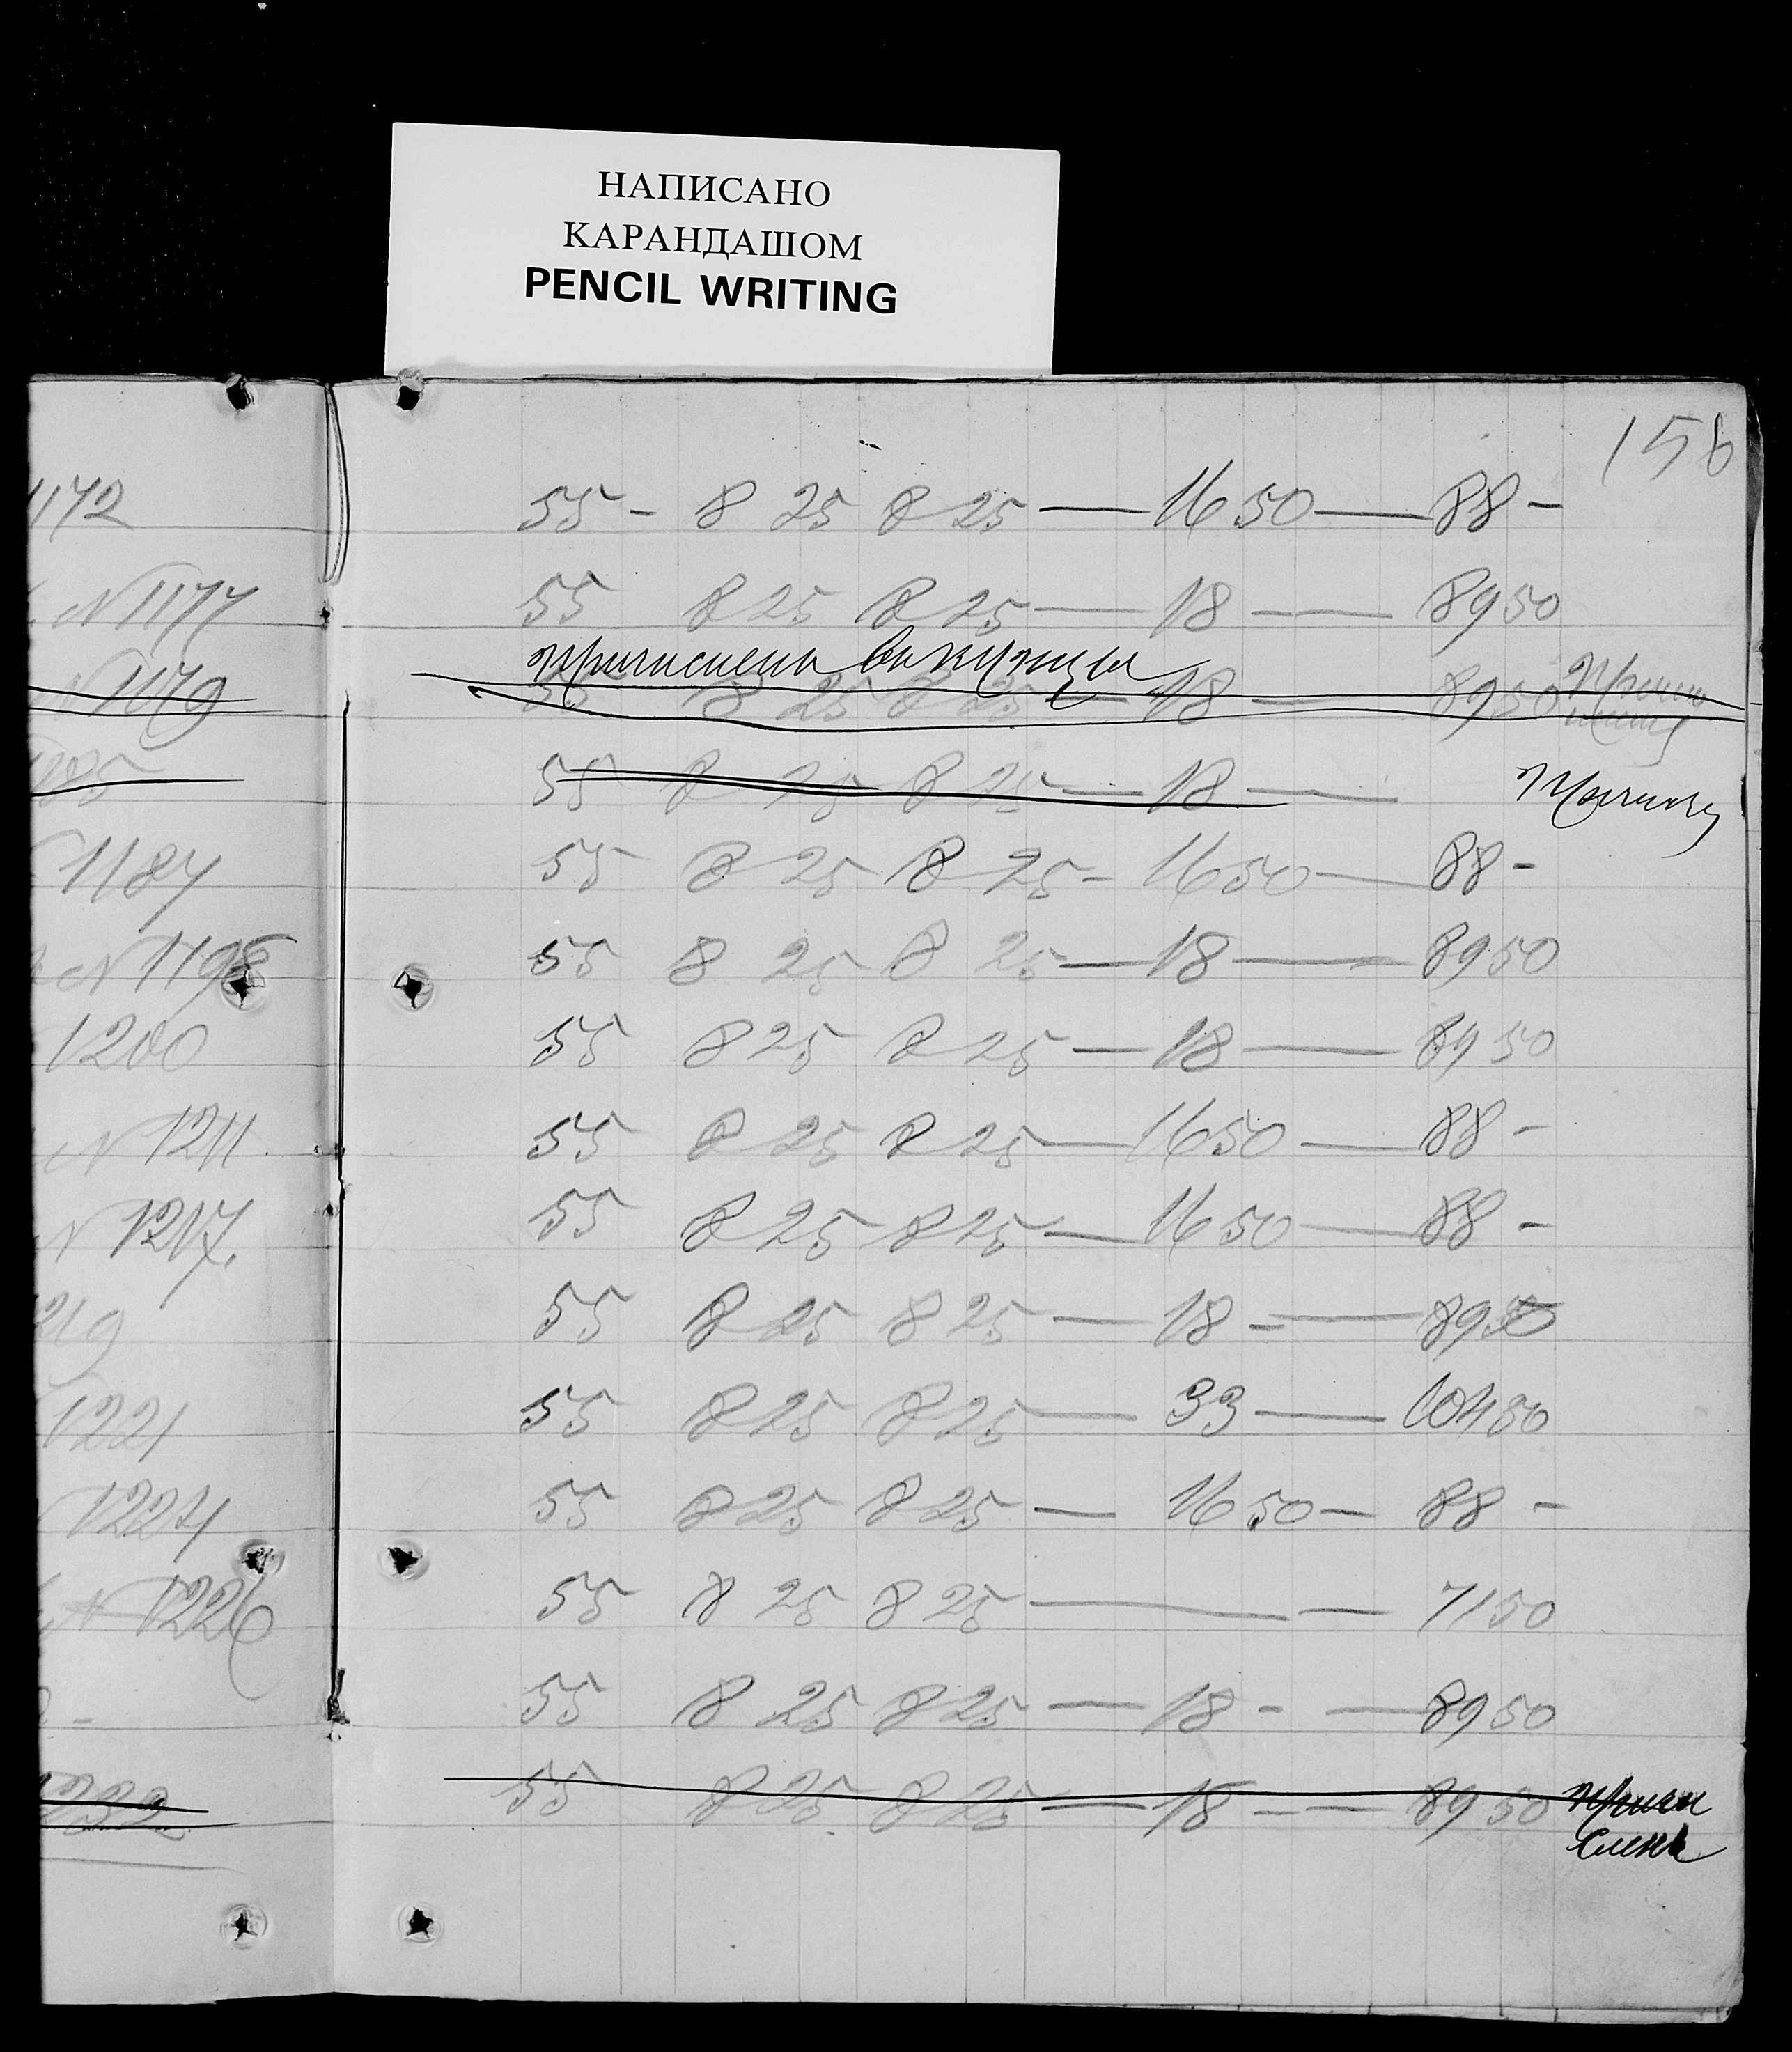 НАПИСАНО
КАРАНДАШОМ
PENCIL WRITING
156
1172 55 - 8 25 8 25 — 16 50 — 88 -
N 1177 55 8 25 8 25 — 18 — 89 50
причислены
N 1179 55 8 25 8 25 — 18 — 89 50
55 8 25 8 25 — 18 —
1187 55 8 25 8 25 - 16 50 — 88 -
N 1198 55 8 25 8 25 — 18 — 89 50
1200 55 8 25 8 25 — 18 — 89 50
N 1211 55 8 25 8 25 — 16 50 — 88 -
N 1217. 55 8 25 8 25 — 16 50 — 88 -
219 55 8 25 8 25 — 18 - — 89 50
1221 55 8 25 8 25 — 33 — 104 50
1224 55 8 25 8 25 — 16 50 — 88 -
N 1226 55 8 25 8 25 — — 71 50
55 8 25 8 25 — 18 - — 89 50
232 55 8 25 8 25 — 18 - — 89 50 причи
слена